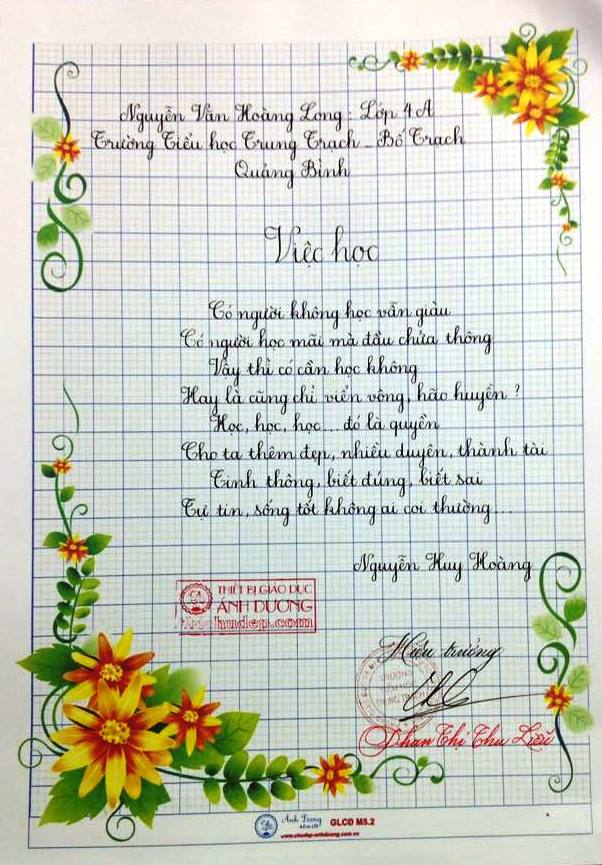 Nguyễn Văn Hoàng Long : Lớp 4A
Trường Tiểu học Trung Trạch _ Bố Trạch
Quảng Bình
Việc học
Có người không học vẫn giàu
Có người học mãi mà đầu chửa thông
Vậy thì có cần học không
Hay là cũng chỉ viển vông, hão huyền ?
Học, học, học... đó là quyền
Cho ta thêm đẹp, nhiều duyên, thành tài
Tinh thông, biết đúng, biết sai
Tự tin, sống tốt không ai coi thường...
Nguyễn Huy Hoàng
THIẾT BỊ GIÁO DỤC
ÁNH DƯƠNG
Hiệu trưởng
Phan Thị Thu Liễu
Ánh Dương
GLCĐ M5.2
www.chudep-anhduong.com.vn